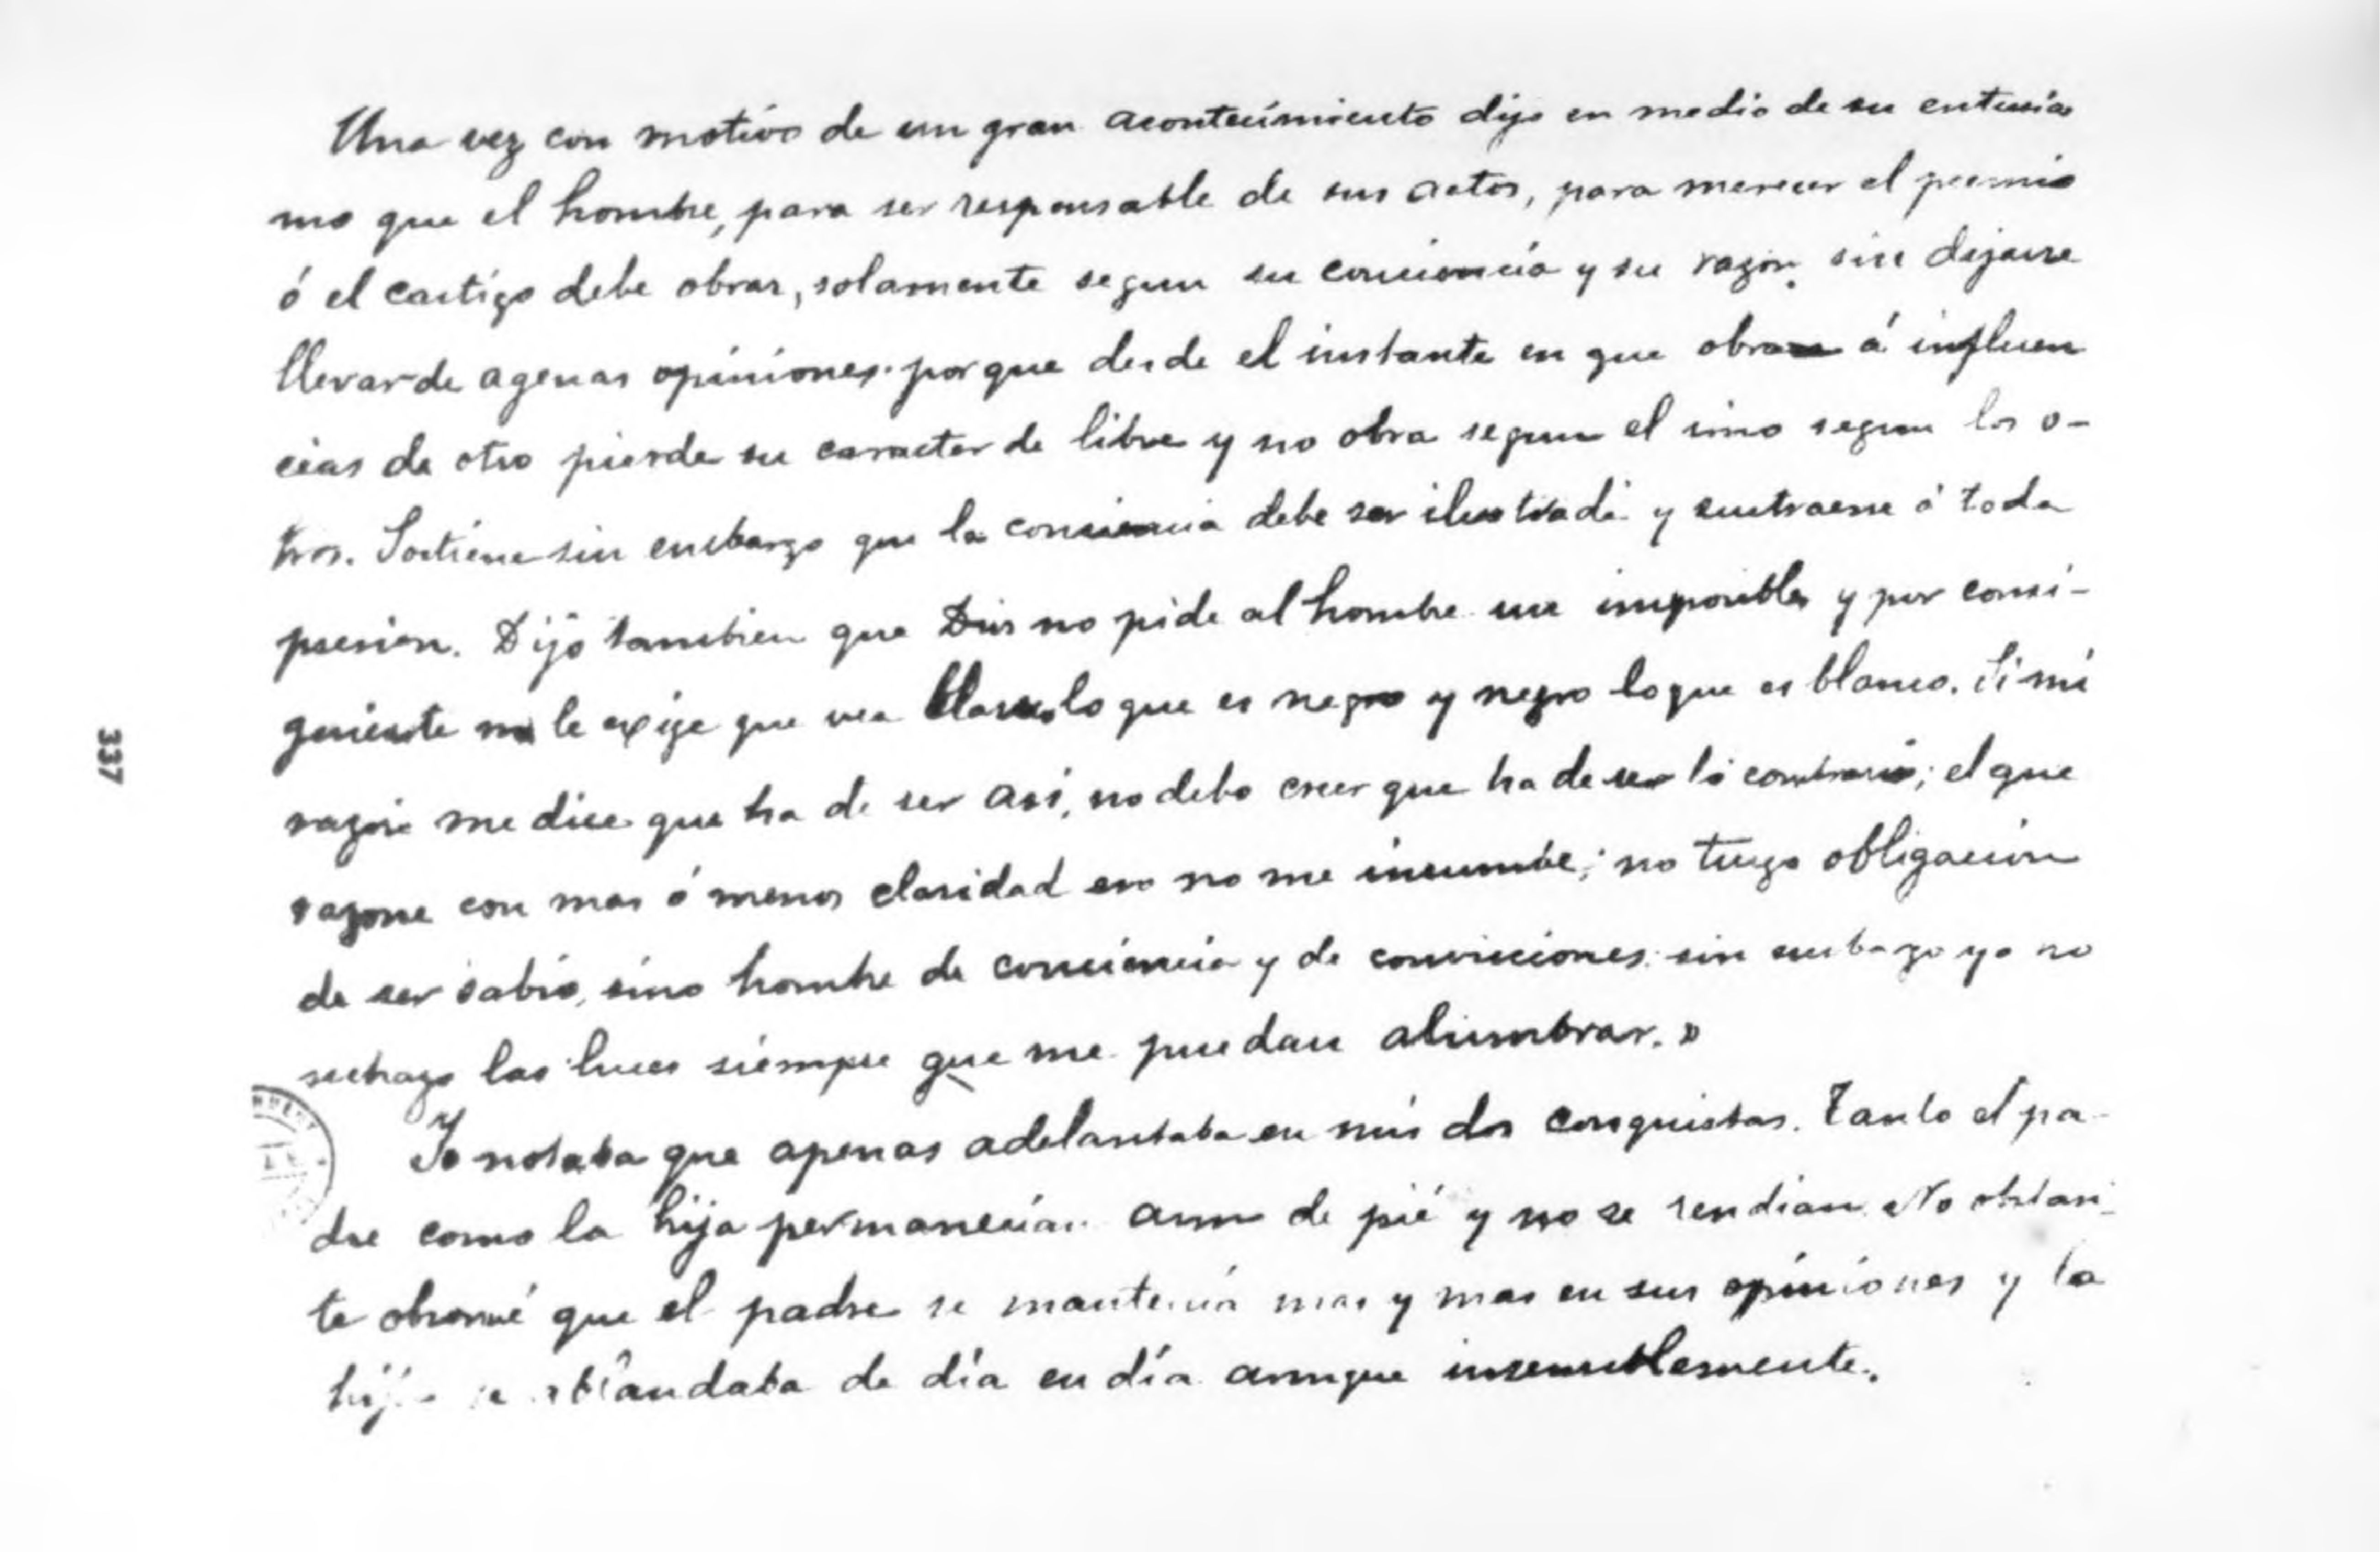 Una vez con motivo de un gran acontecimiento dijo en medio de su entusias
mo que el hombre, para ser responsable de sus actos, para merecer el premio
ó el castigo debe obrar, solamente segun su conciencia y su razon, sin dejarse
llevar de agenas opiniones. porque desde el instante en que obra á influen
cias de otro pierde su caracter de libre y no obra segun el sino segun los o-
tros. Sostiene sin embargo que la conciencia debe ser ilustrada y sustraerse á toda
presion. Dijo tambien que Dios no pide al hombre un imposible y por consi-
guiente no le exije que vea blanco lo que es negro y negro lo que es blanco. Si mi
razon me dice que ha de ser así, no debo creer que ha de ser lo contrario; el que
razone con mas ó menos claridad eso no me incumbe; no tengo obligacion
de ser sabio, sino hombre de conciencia y de convicciones. sin embargo yo no
rechazo las luces siempre que me puedan alumbrar. »
Yo notaba que apenas adelantaba en mis dos conquistas. Tanto el pa-
dre como la hija permanecían aun de pié y no se rendian. No obstan-
te observé que el padre se mantenia mas y mas en sus opiniones y la
hija se ablandaba de día en día aunque insensiblemente.
337